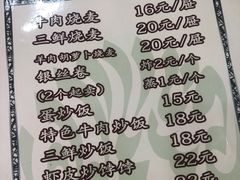 牛肉烧麦 16元/屉
三鲜烧麦 20元/屉
羊肉胡萝卜烧麦 20元/屉
银丝卷 炸2元/个
(2个起卖) 蒸1元/个
蛋炒饭 15元
特色牛肉炒饭 18元
三鲜炒饭 18元
虾皮炒饽饽 22元